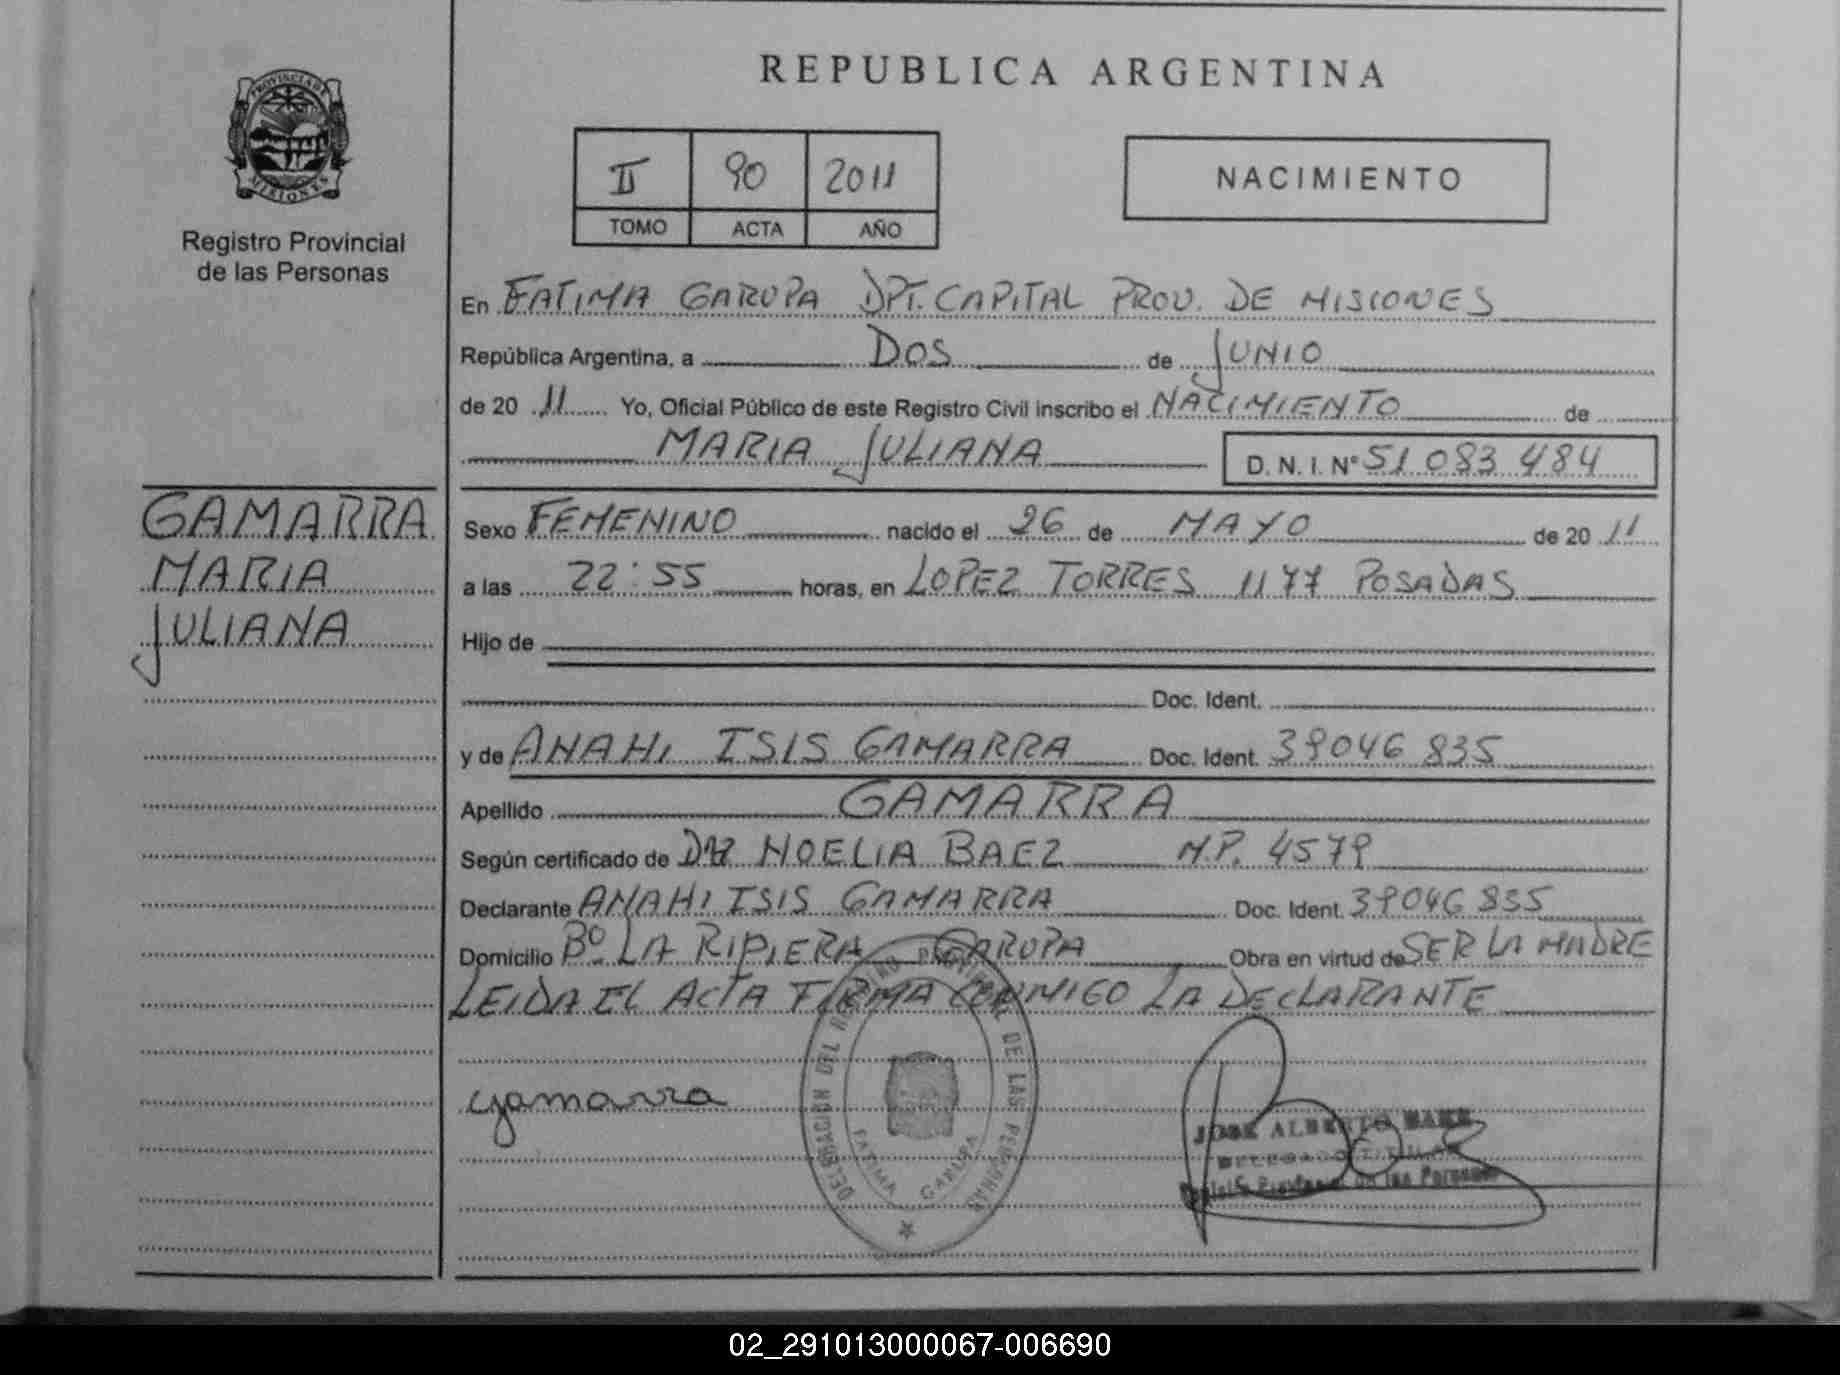 REPUBLICA ARGENTINA
PROVINCIA DE MISIONES
Registro Provincial
de las Personas
II 90 2011
TOMO ACTA AÑO
NACIMIENTO
En FATIMA GARUPA DPT. CAPITAL PROV. DE MISIONES
República Argentina, a DOS de JUNIO
de 20 11 Yo, Oficial Público de este Registro Civil inscribo el NACIMIENTO de
MARIA JULIANA D. N. I. Nº 51 083 484
GAMARRA
MARIA
JULIANA
Sexo FEMENINO nacido el 26 de MAYO de 20 11
a las 22:55 horas, en LOPEZ TORRES 1177 POSADAS
Hijo de
Doc. Ident.
y de ANAHI ISIS GAMARRA Doc. Ident. 39046 835
Apellido GAMARRA
Según certificado de NOELIA BAEZ M.P. 4579
Declarante ANAHI ISIS GAMARRA Doc. Ident. 39046 835
Domicilio Bº LA RIPIERA GARUPA Obra en virtud de SER LA MADRE
LEIDA EL ACTA FIRMA CONMIGO LA DECLARANTE
gamarra
DELEGACION DEL REGISTRO PROVINCIAL DE LAS PERSONAS
FATIMA GARUPA
JOSE ALBERTO
DELEGADO TITULAR
Provincial de las Personas
02_291013000067-006690